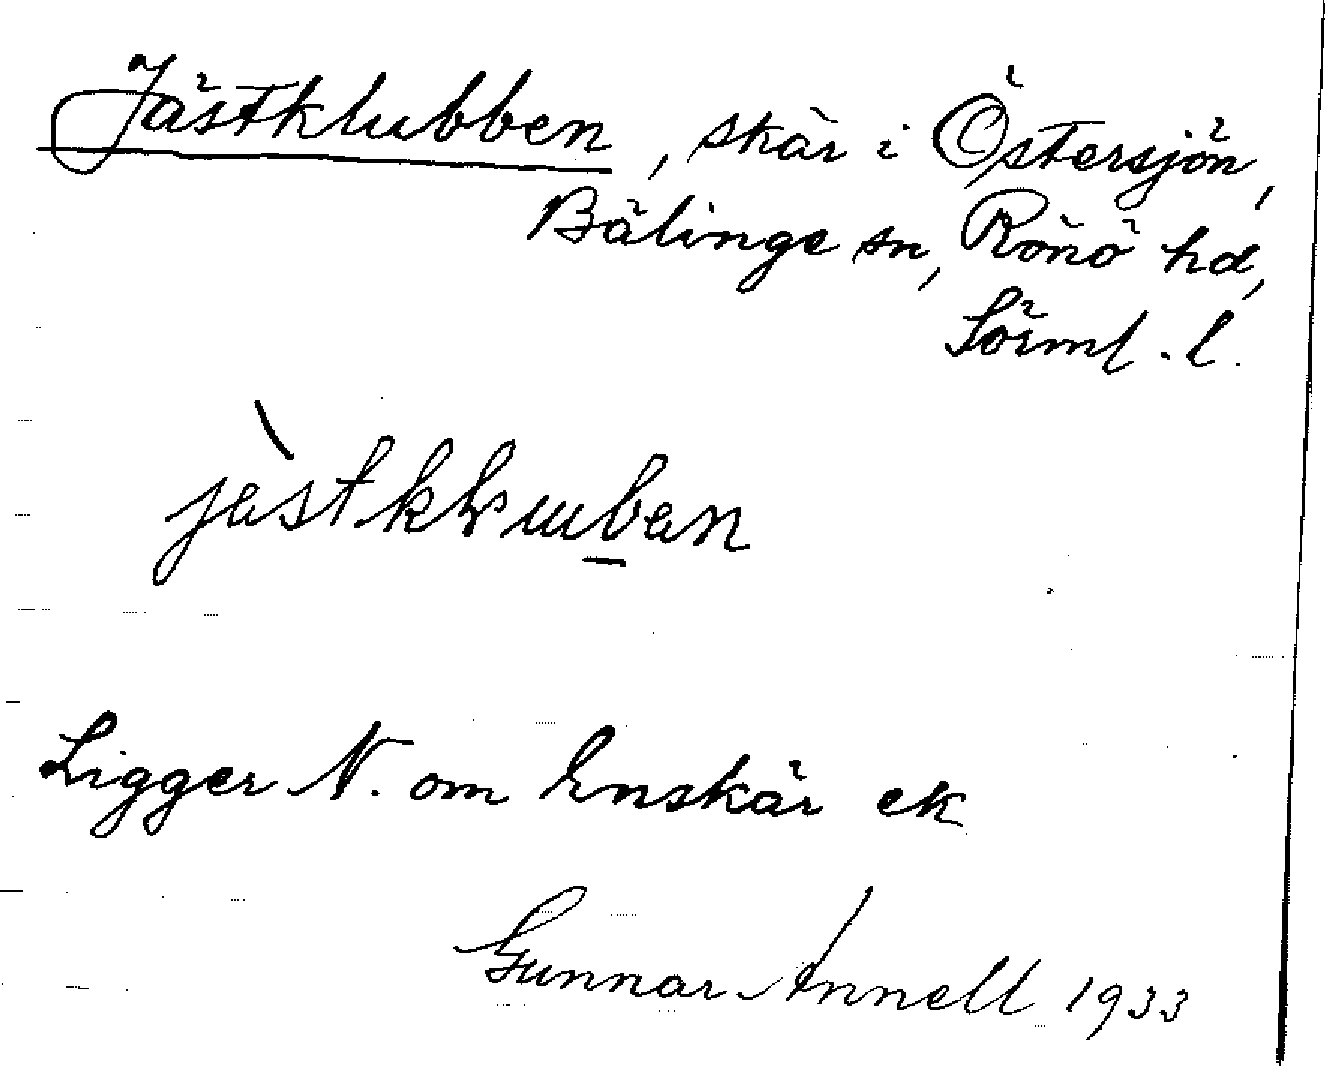 Jästklubben, skär i Östersjön,
Bälinge sn, Rönö hd,
Sörml. l.
jàstkluban
Ligger N. om Enskär ek
Gunnar Annell 1933